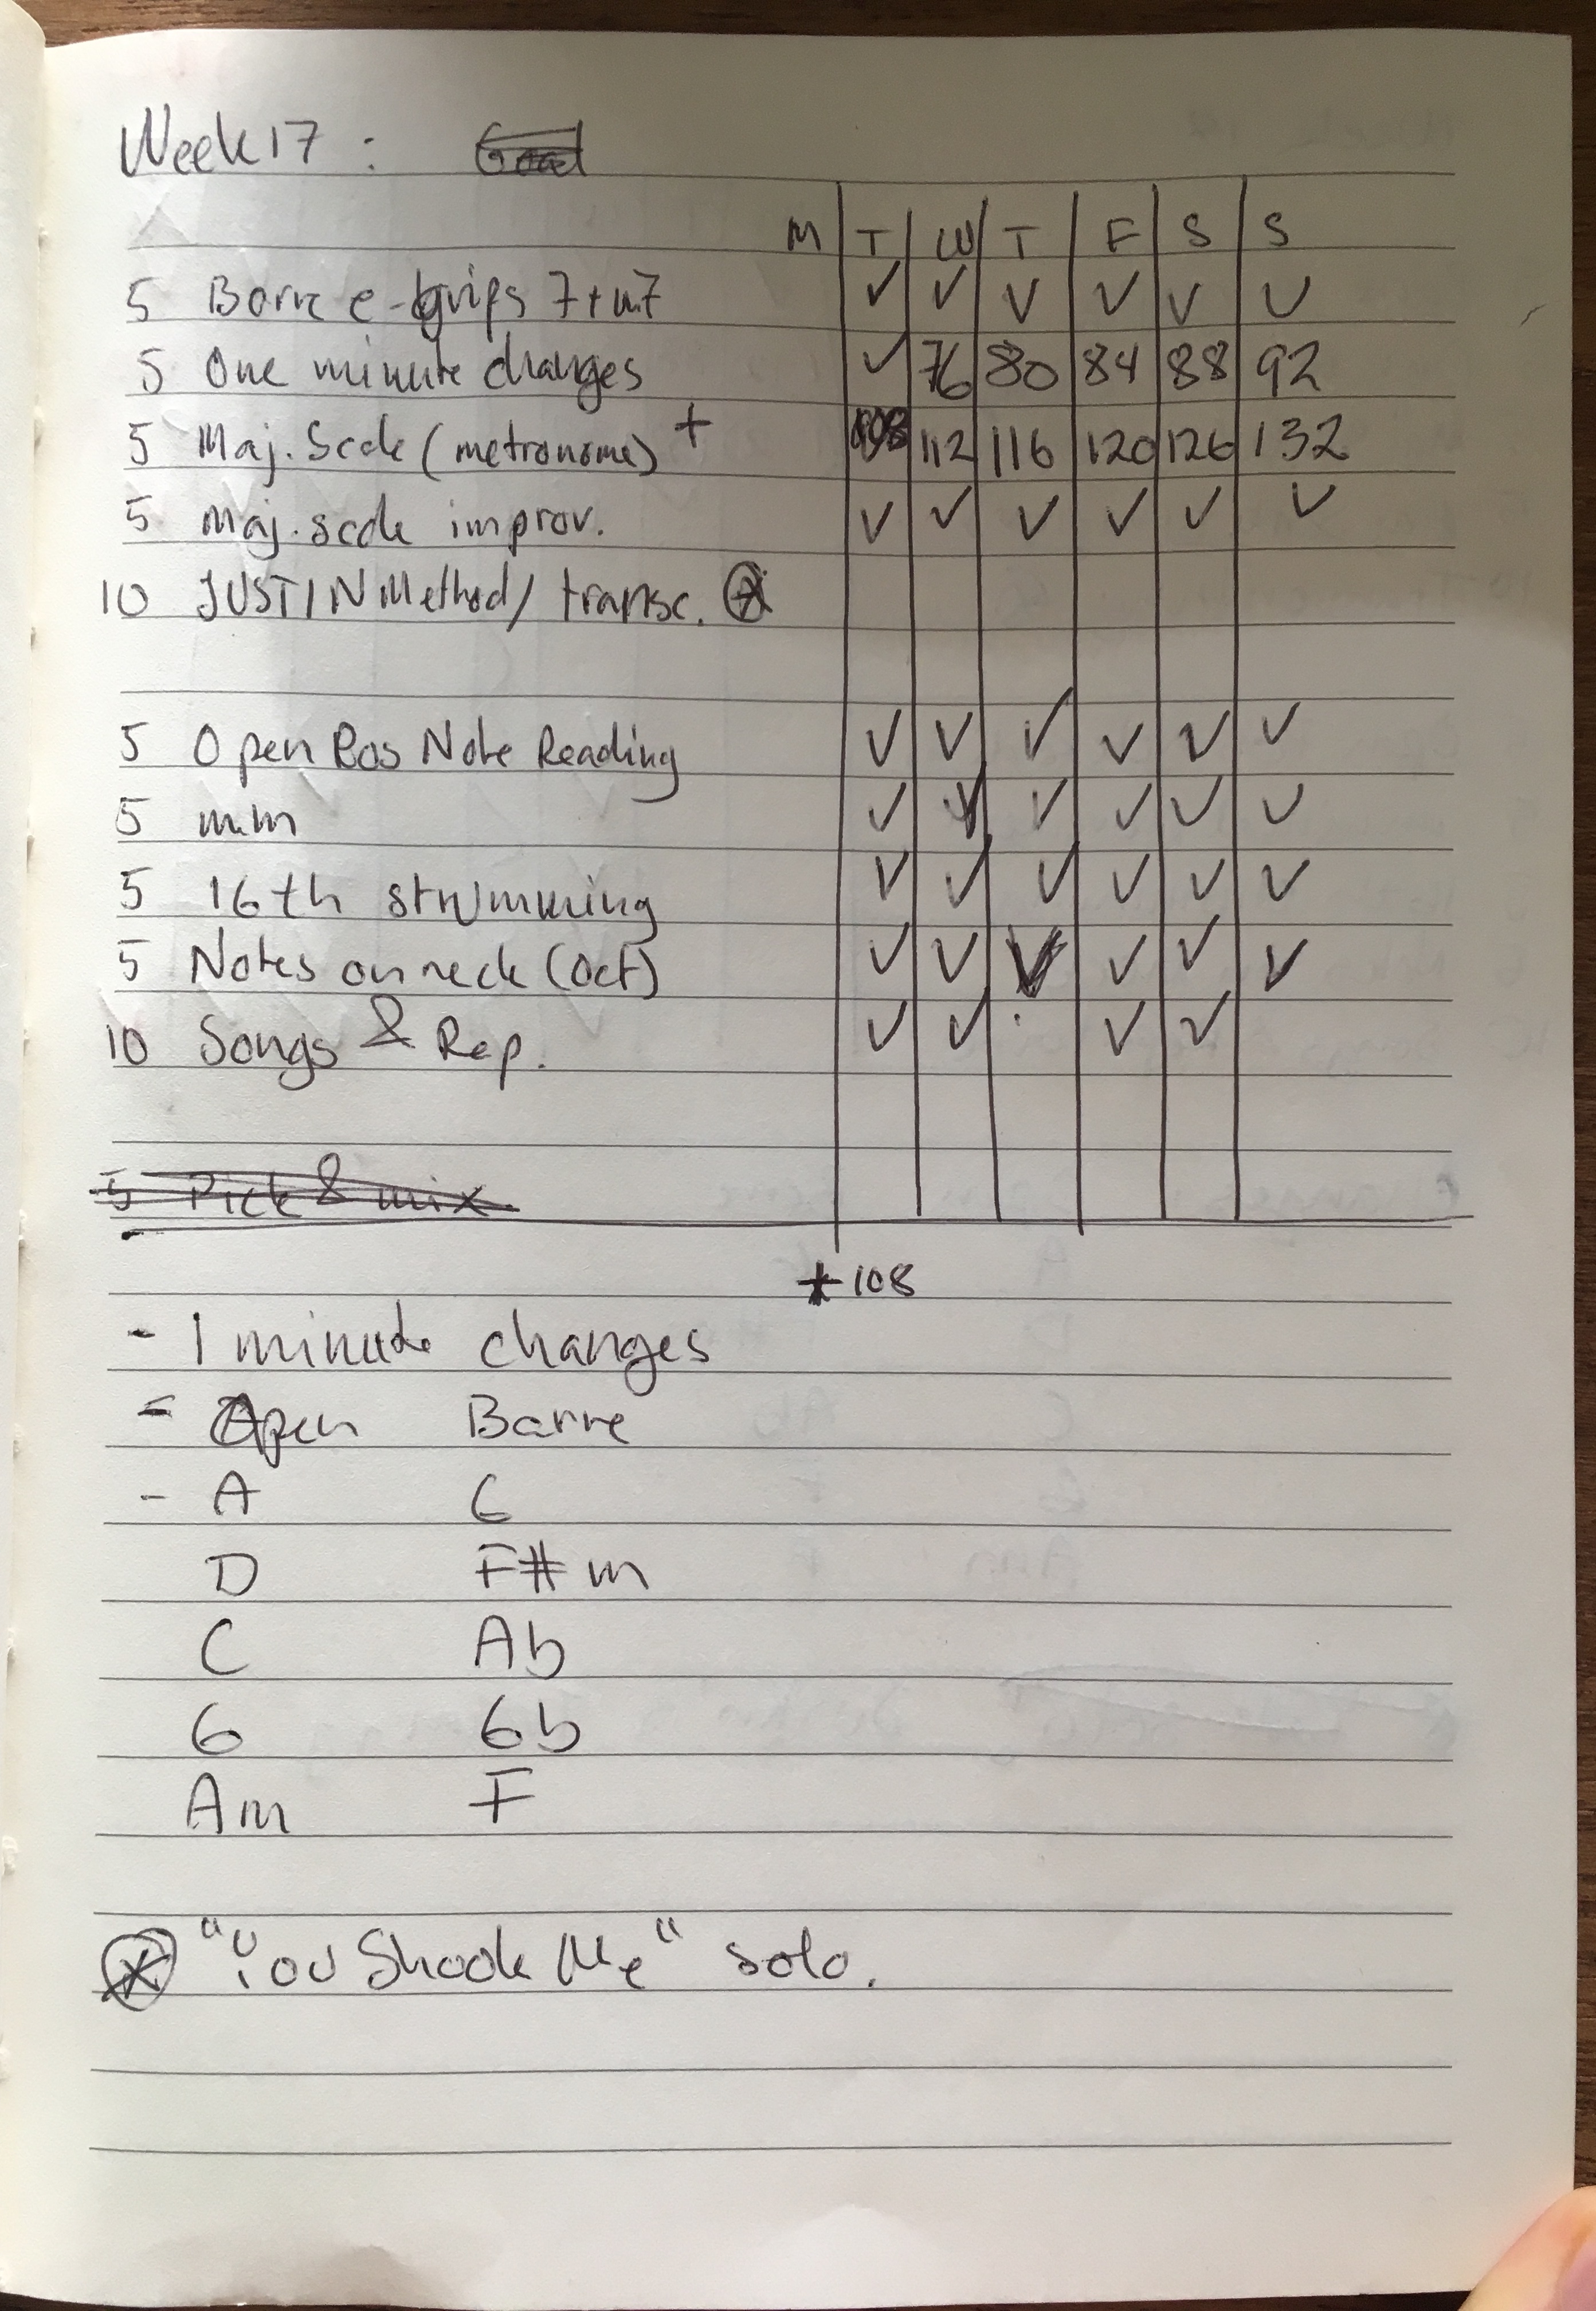 Week 17 :
M T W T F S S
5 Barre e-grips 7+m7 ✓ ✓ ✓ ✓ ✓ ✓
5 One minute changes ✓ 76 80 84 88 92
5 Maj. Scale (metronome) + 108 112 116 120 126 132
5 Maj. scale improv. ✓ ✓ ✓ ✓ ✓ ✓
10 JUSTIN Method/ transc. ⊛
5 Open Pos Note Reading ✓ ✓ ✓ ✓ ✓ ✓
5 m.m ✓ ✓ ✓ ✓ ✓ ✓
5 16th strumming ✓ ✓ ✓ ✓ ✓ ✓
5 Notes on neck (Oct) ✓ ✓ ✓ ✓ ✓ ✓
10 Songs & Rep. ✓ ✓ ✓ ✓
5 Pick & mix
* 108
- 1 minute changes
- Open Barre
- A G
D F#m
C Ab
G Gb
Am F
⊛ "You Shook Me" solo.